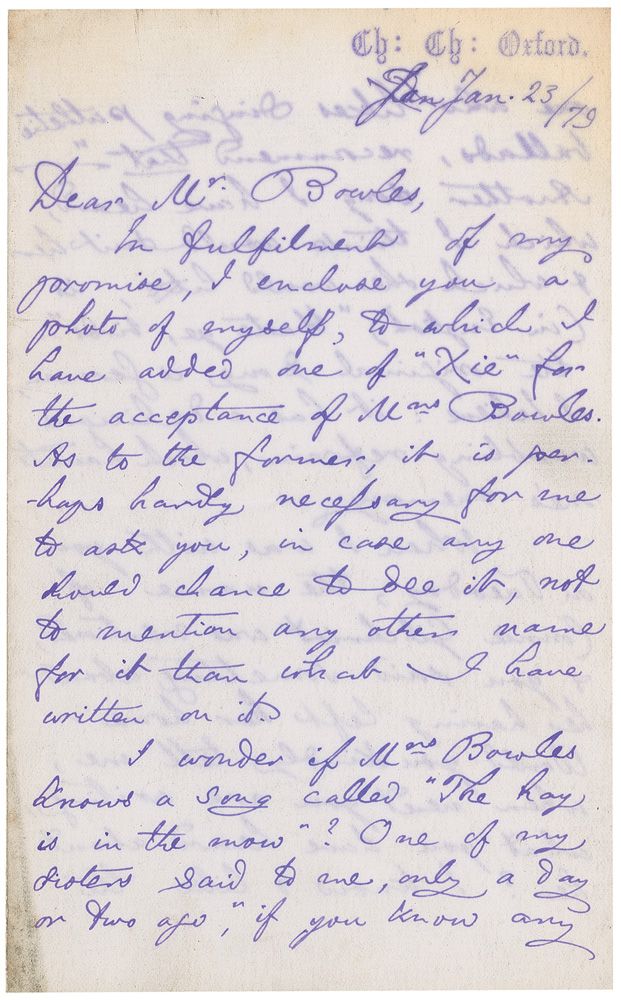 Ch: Ch: Oxford.
Jan. 23/79
Dear Mr. Bowles,
In fulfilment of my
promise, I enclose you a
photo of myself, to which I
have added one of "Xie" for
the acceptance of Mrs Bowles.
As to the former, it is per-
-haps hardly necessary for me
to ask you, in case any one
should chance to see it, not
to mention any other name
for it than what I have
written on it.
I wonder if Mrs Bowles
knows a song called "The hay
is in the mow"? One of my
sisters said to me, only a day
or two ago, "if you know any